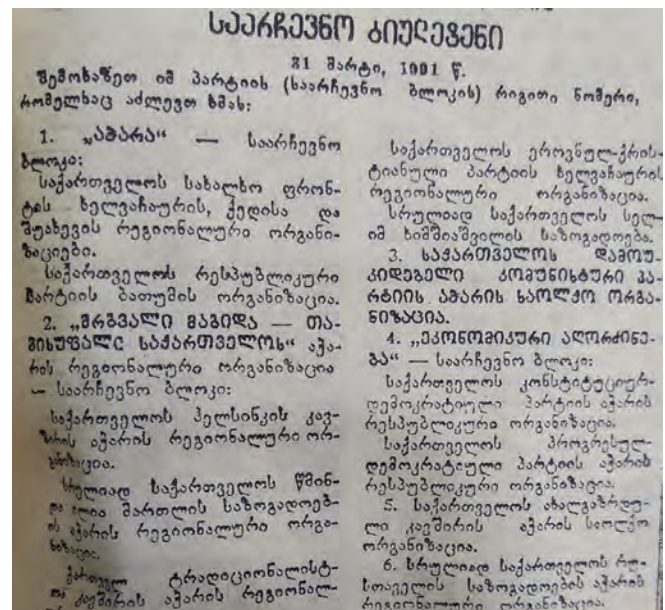 საარჩევნო ბიულეტენი
31 მარტი, 1991 წ.
შემოხაზეთ იმ პარტიის (საარჩევნო ბლოკის) რიგითი ნომერი,
რომელსაც აძლევთ ხმას:
1. „აჭარა“ — საარჩევნო
ბლოკი:
საქართველოს სახალხო ფრონ-
ტის ხელვაჩაურის, ქედისა და
შუახევის რეგიონალური ორგანი-
ზაციები.
საქართველოს რესპუბლიკური
პარტიის ბათუმის ორგანიზაცია.
2. „მრგვალი მაგიდა — თა-
ვისუფალი საქართველოს“ აჭა-
რის რეგიონალური ორგანიზაცია
— საარჩევნო ბლოკი:
საქართველოს ჰელსინკის კავ-
შირის აჭარის რეგიონალური ორ-
განიზაცია.
სრულიად საქართველოს წმინ-
და ილია მართლის საზოგადოებ-
ის აჭარის რეგიონალური ორგა-
ნიზაცია.
ქართველ ტრადიციონალისტ-
თა კავშირის აჭარის რეგიონალ-
საქართველოს ეროვნულ-ქრის-
ტიანული პარტიის ხელვაჩაურის
რეგიონალური ორგანიზაცია.
სრულიად საქართველოს სელ-
იმ ხიმშიაშვილის საზოგადოება.
3. საქართველოს დამოუ-
კიდებელი კომუნისტური პა-
რტიის აჭარის საოლქო ორგა-
ნიზაცია.
4. „ეკონომიკური აღორძინე-
ბა“ — საარჩევნო ბლოკი:
საქართველოს კონსტიტუციურ-
დემოკრატიული პარტიის აჭარის
რესპუბლიკური ორგანიზაცია.
საქართველოს პროგრესულ-
დემოკრატიული პარტიის აჭარის
რესპუბლიკური ორგანიზაცია.
5. საქართველოს ახალგაზრდუ-
ლი კავშირის აჭარის საოლქო
ორგანიზაცია.
6. სრულიად საქართველოს რუ-
სთაველის საზოგადოების აჭარის
რეგიონალური ორგანიზაცია.